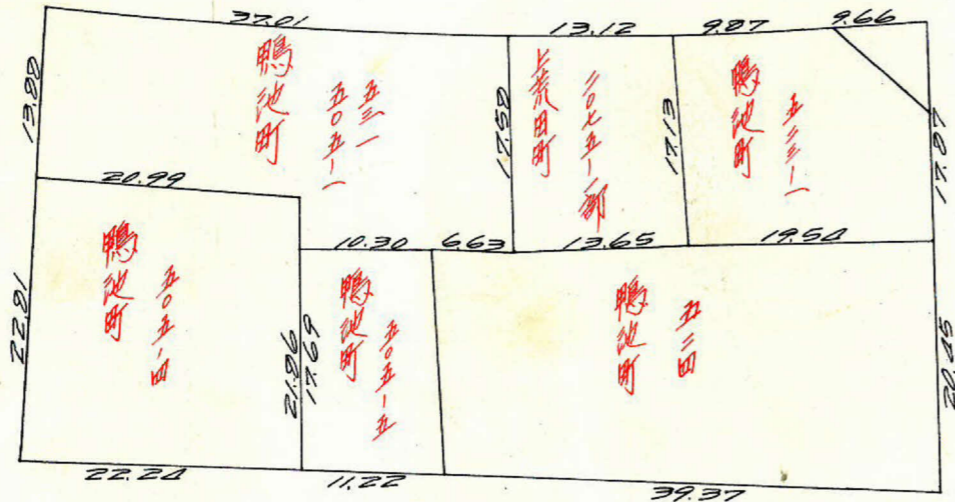 37.01
13.12
9.87
9.66
13.88
鴨池町
五三一
五〇五ー一
17.58
上荒田町
二〇七五ー一部
17.13
鴨池町
17.87
20.99
10.30
6.63
13.65
19.54
22.81
鴨池町
五〇五ー四
21.86
17.69
鴨池町
五〇五ー五
鴨池町
五二四
20.45
22.24
11.22
39.37